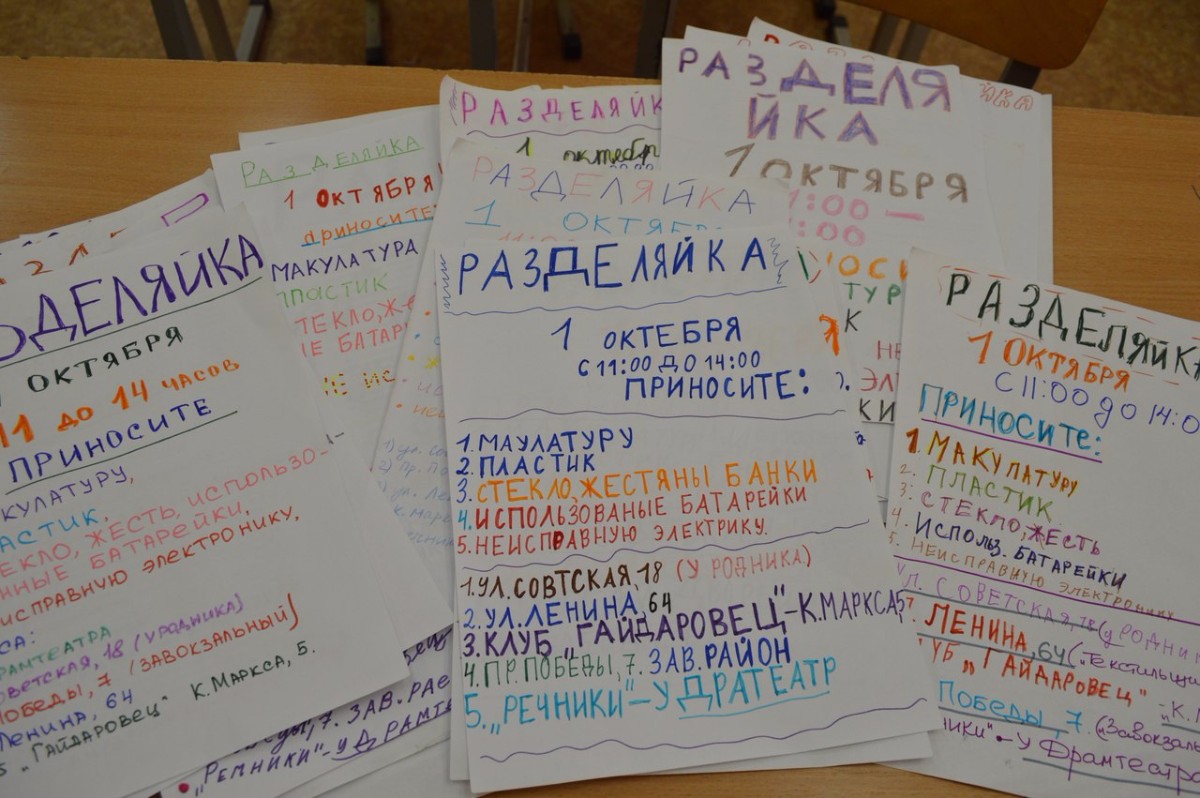 РАЗДЕЛЯЙКА
1 ОКТЕБРЯ
С 11:00 ДО 14:00
ПРИНОСИТЕ:
1. МАУЛАТУРУ
2. ПЛАСТИК
3. СТЕКЛО, ЖЕСТЯНЫ БАНКИ
4. ИСПОЛЬЗОВАНЫЕ БАТАРЕЙКИ
5. НЕИСПРАВНУЮ ЭЛЕКТРИКУ.
1. УЛ. СОВТСКАЯ, 18 (У РОДНИКА)
2. УЛ. ЛЕНИНА, 64
3. КЛУБ "ГАЙДАРОВЕЦ" - К. МАРКСА, 5
4. ПР. ПОБЕДЫ, 7. ЗАВ. РАЙОН
5. "РЕЧНИКИ" - У ДРАТЕАТР
ДЕЛЯЙКА
ОКТЯБРЯ
11 ДО 14 ЧАСОВ
ПРИНОСИТЕ
КУЛАТУРУ,
АСТИК,
ЕКЛО, ЖЕСТЬ, ИСПОЛЬЗО-
ННЫЕ БАТАРЕЙКИ,
ИСПРАВНУЮ ЭЛЕКТРОНИКУ,
СА:
РАМТЕАТРА
ОВЕТСКАЯ, 18 (У РОДНИКА)
ПОБЕДЫ, 7 (ЗАВОКЗАЛЬНЫЙ)
ЛЕНИНА, 64
"ГАЙДАРОВЕЦ" К. МАРКСА, 5.
РАЗДЕЛЯЙКА
1 ОКТЯБРЯ
приносите
МАКУЛАТУРА
ПЛАСТИК
ТЕКЛО, ЖЕ
ЫЕ БАТАР
НЕ ИС
РАЗДЕЛЯЙК
1 октебр
РАЗДЕЛЯЙКА
1 ОКТЯБР
РАЗДЕЛЯ
ЙКА
1 ОКТЯБРЯ
1:00 —
:00
ОСИ
ТУР
К
НЕ
ЭЛ
КИ
РАЗДЕЛЯЙКА
1 ОКТЯБРЯ
С 11:00 до 14:0
ПРИНОСИТЕ:
1. МАКУЛАТУРУ
2. ПЛАСТИК
3. СТЕКЛО, ЖЕСТЬ
4. ИСПОЛЬЗ. БАТАРЕЙКИ
5. НЕИСПРАВНУЮ ЭЛЕКТРОНИКУ
УЛ. СОВЕТСКАЯ, 18 (у РОДНИ
ЛЕНИНА, 64 ("Текстильщи
УБ "ГАЙДАРОВЕЦ" - К.
ПОБЕДЫ, 7. (Завокзаль
ники" - У Драмтеатра
7. ЗАВ. РАЕ
"РЕМНИКИ" - У ДРАМТЕ